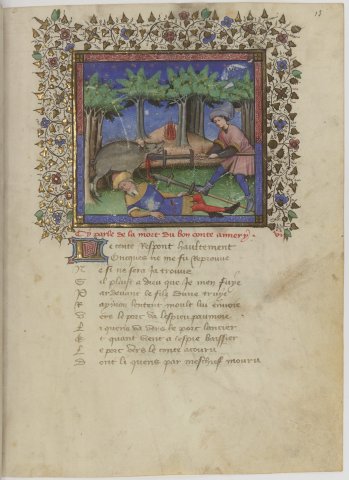 Cy parle de la mort du bon conte aymery
Le conte respont haultement
Oncques ne me fu reprouve
Ne si ne sera ja trouve
Se il plaist a dieu que je mon fuye
Par devant le filz dune truye
Raymon lentent moult lui ennoie
Vers le porc va lespieu paumoie
Li quens va vers le porc lancier
Et quant vient a lespie baissier
Le porc vers le conte acouru
Dont li quens par meschief mouru